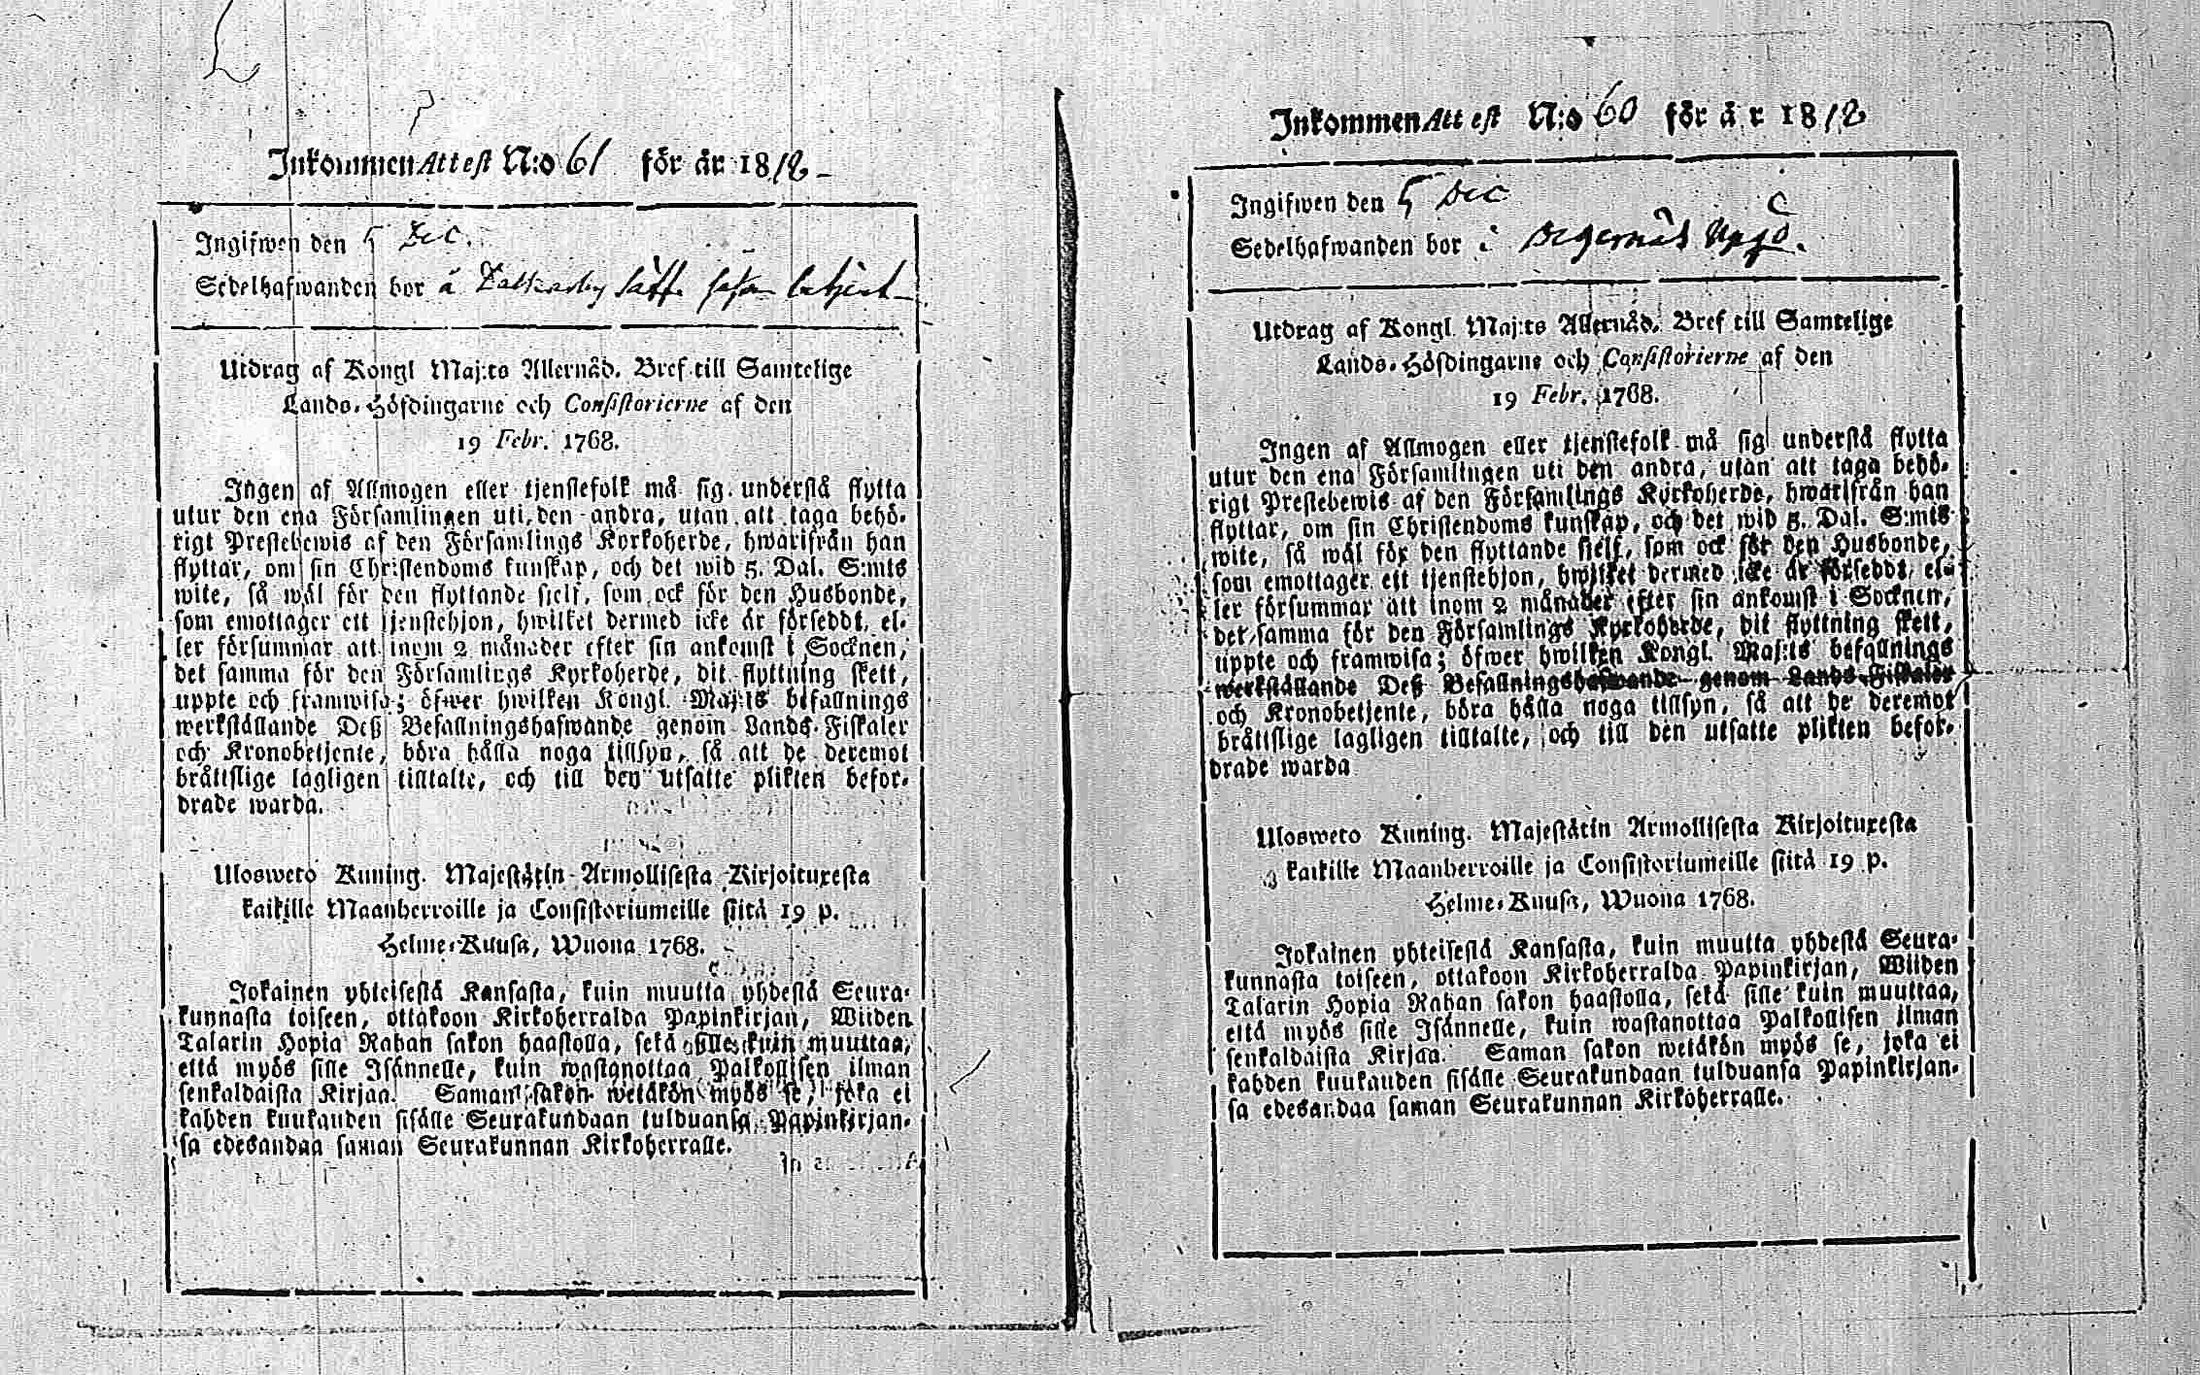 Inkommen Attest N:o 61 för år 1812
Ingifwen den 5 Dec.
Sedelhafwanden bor å
Utdrag af Kongl Maj:ts Allernåd. Bref till Samtelige
Lands-Höfdingarne och Consistorierne af den
19 Febr. 1768.
Ingen af Allmogen eller tjenstefolk må sig understå flytta
utur den ena Församlingen uti den andra, utan att taga behö-
rigt Prestebewis af den Församlings Kyrkoherde, hwarifrån han
flyttar, om sin Christendoms kunskap, och det wid 5. Dal. S:mts
wite, så wäl för den flyttande sielf, som ock för den Husbonde,
som emottager ett tjenstehjon, hwilket dermed icke är förseddt, el-
ler försummar att inom 2 månader efter sin ankomst i Socknen,
det samma för den Församlings Kyrkoherde, dit flyttning skett,
uppte och framwisa; öfwer hwilken Kongl. Maj:ts befallnings
werkställande Deß Befallningshafwande genom Lands-Fiskaler
och Kronobetjente, böra hålla noga tillsyn, så att de deremot
bråttslige lagligen tilltalte, och till den utsatte plikten befor-
drade warda.
Ulosweto Kuning. Majestätin Armollisesta Kirjoituxesta
kaikille Maanherroille ja Consistoriumeille siitä 19 p.
Helme-Kuusa, Wuona 1768.
Jokainen yhteisestä Kansasta, kuin muutta yhdestä Seura-
kunnasta toiseen, ottakoon Kirkoherralda Papinkirjan, Wiiden
Talarin Hopia Rahan sakon haastolla, sekä sille kuin muuttaa,
että myös sille Isännelle, kuin wastanottaa Palkollisen ilman
senkaldaista Kirjaa. Saman sakon wetäkön myös se, joka ei
kahden kuukauden sisälle Seurakundaan tulduansa Papinkirjan-
sa edesandaa saman Seurakunnan Kirkoherralle.
Inkommen Attest N:o 60 för år 1812
Ingifwen den 5 Dec
Sedelhafwanden bor i Degernäs
Utdrag af Kongl. Maj:ts Allernåd. Bref till Samtelige
Lands-Höfdingarne och Consistorierne af den
19 Febr. 1768.
Ingen af Allmogen eller tjenstefolk må sig understå flytta
utur den ena Församlingen uti den andra, utan att taga behö-
rigt Prestebewis af den Församlings Kyrkoherde, hwarifrån han
flyttar, om sin Christendoms kunskap, och det wid 5. Dal. S:mts
wite, så wäl för den flyttande sielf, som ock för den Husbonde,
som emottager ett tjenstehjon, hwilket dermed icke är förseddt, el-
ler försummar att inom 2 månader efter sin ankomst i Socknen,
det samma för den Församlings Kyrkoherde, dit flyttning skett,
uppte och framwisa; öfwer hwilken Kongl. Maj:ts befallnings
werkställande Deß Befallningshafwande genom Lands-Fiskaler
och Kronobetjente, böra hålla noga tillsyn, så att de deremot
bråttslige lagligen tilltalte, och till den utsatte plikten befor-
drade warda
Ulosweto Kuning. Majestätin Armollisesta Kirjoituxesta
kaikille Maanherroille ja Consistoriumeille siitä 19 p.
Helme-Kuusa, Wuona 1768.
Jokainen yhteisestä Kansasta, kuin muutta yhdestä Seura-
kunnasta toiseen, ottakoon Kirkoherralda Papinkirjan, Wiiden
Talarin Hopia Rahan sakon haastolla, sekä sille kuin muuttaa,
että myös sille Isännelle, kuin wastanottaa Palkollisen ilman
senkaldaista Kirjaa. Saman sakon wetäkön myös se, joka ei
kahden kuukauden sisälle Seurakundaan tulduansa Papinkirjan-
sa edesandaa saman Seurakunnan Kirkoherralle.